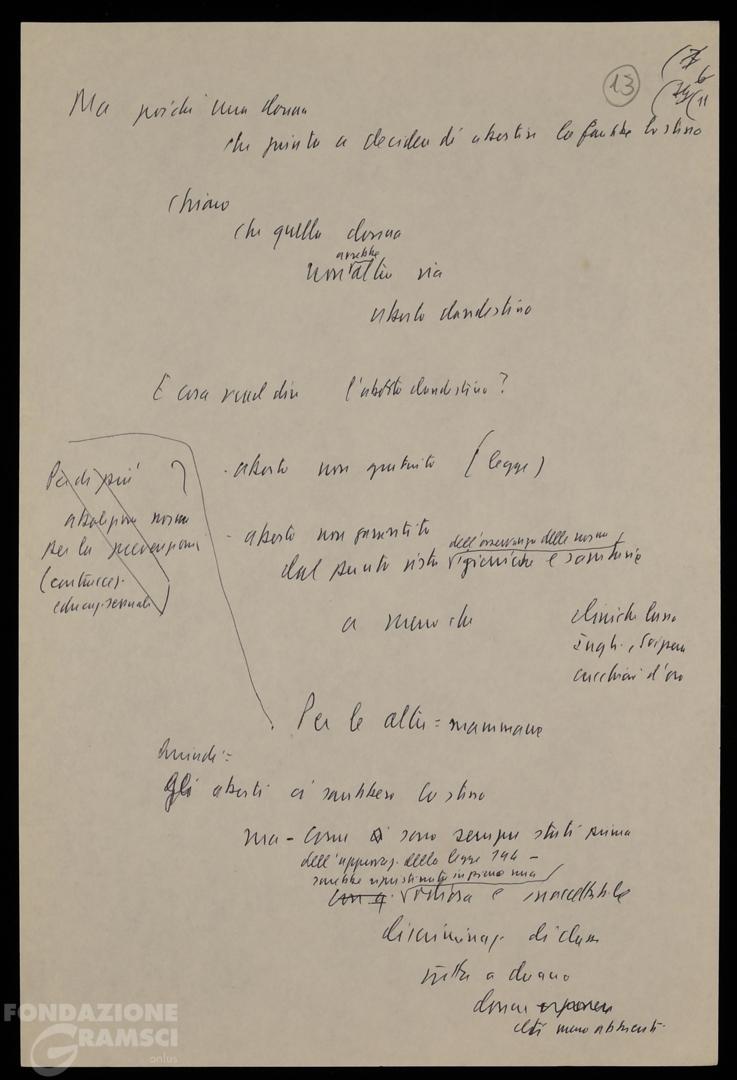 13
Ma poiché una donna
che giunta a decider di abortire lo farebbe lo stesso
chiaro
che quella donna
avrebbe
non altra via
aborto clandestino
E cosa vuol dire l'aborto clandestino?
- aborto non gratuito (legge)
Per di più
abolizione norma
per la prevenzione
(contraccez.
educaz. sessuale)
- aborto non garantito
dell'osservanza delle norme
dal punto vista igieniche e sanitarie
a meno che
cliniche lusso
Ingh., Svizzera
cucchiai d'oro
Per le altre = mammane
Quindi =
gli aborti ci sarebbero lo stesso
ma - come ci sono sempre stati prima
dell'approvaz. della legge 194 -
sarebbe ripristinata in pieno una
odiosa e inaccettabile
discriminaz. di classe
tutta a danno
donne
ceti meno abbienti.
FONDAZIONE
GRAMSCI
onlus